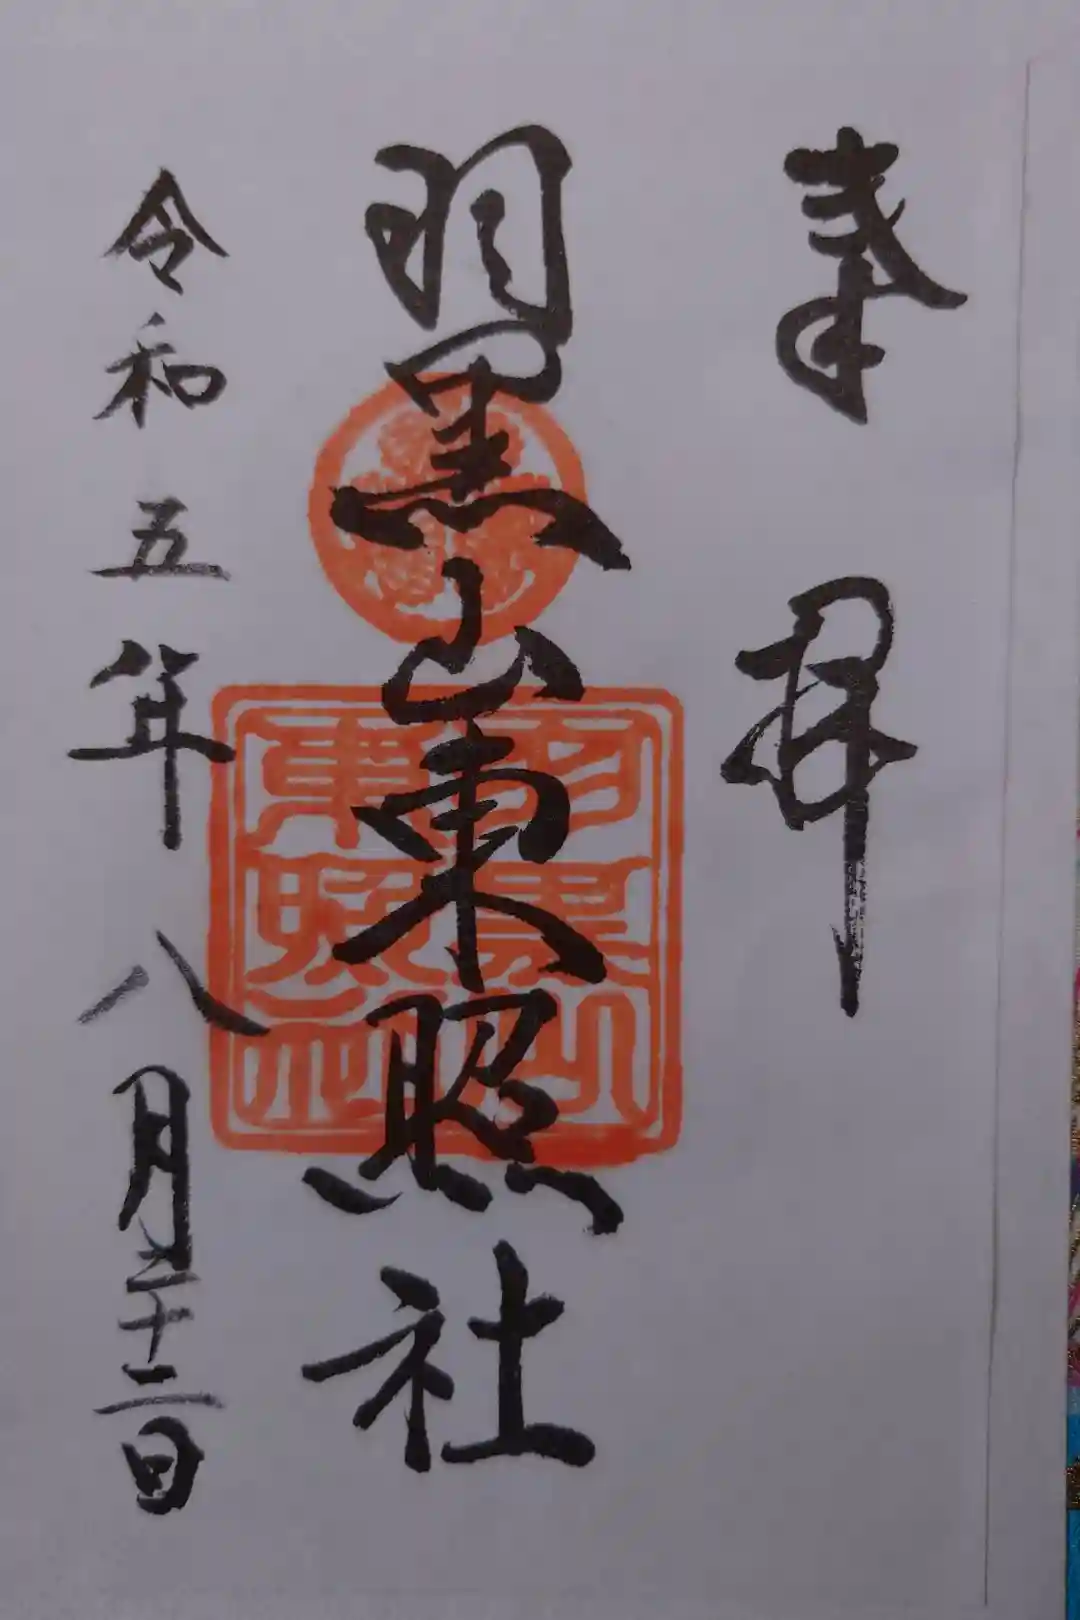 奉拝
羽黒山東照社
羽黒山
東照社
令和五年八月二十二日